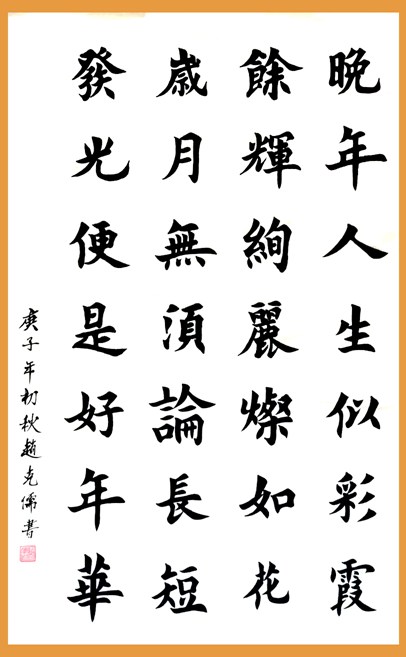 晚年人生似彩霞
餘輝絢麗燦如花
歲月無須論長短
發光便是好年華
庚子年初秋趙克儒書